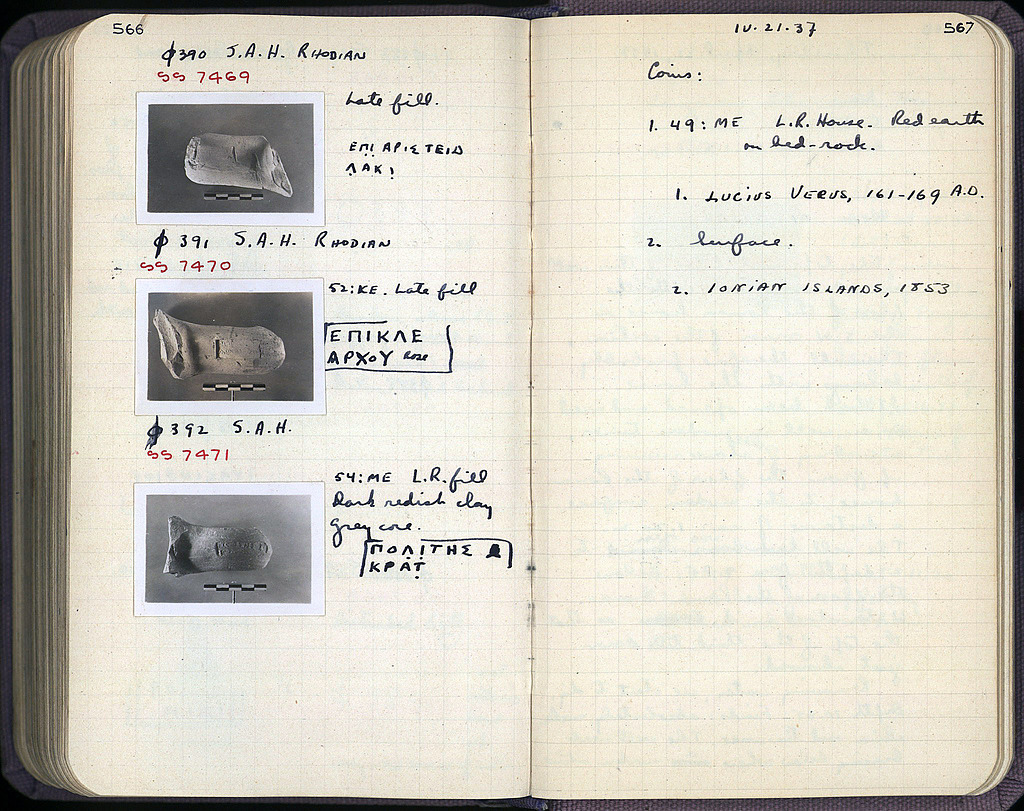 566
φ390 S.A.H. RHODIAN
SS 7469
Late fill.
ΕΠΙ ΑΡΙΣΤΕΙΔ
ΛΑΚΙ
φ 391 S.A.H. RHODIAN
SS 7470
52:ΚΕ. Late fill
ΕΠΙΚΛΕ
ΑΡΧΟΥ Rose
φ 392 S.A.H.
SS 7471
54:ΜΕ L.R. fill
Dark redish clay
Grey core.
ΠΟΛΙΤΗΣ
ΚΡΑΤ
IV.21.37
567
Coins:
1. 49:ΜΕ L.R. House. Red earth
on bed-rock.
1. LUCIUS VERUS, 161-169 A.D.
2. Surface.
2. IONIAN ISLANDS, 1853